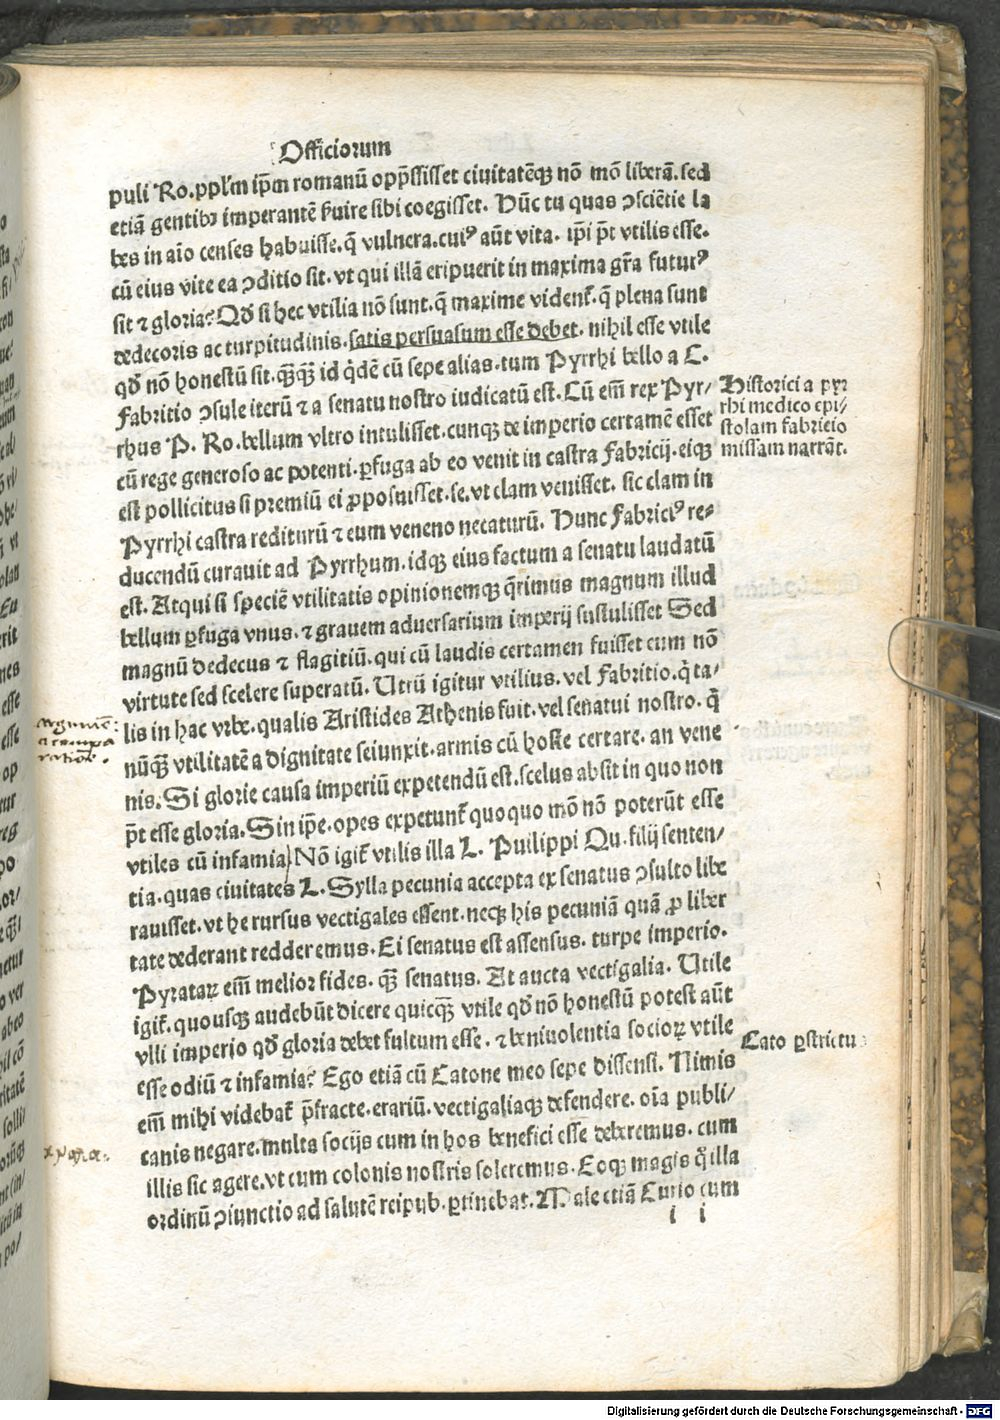 Officiorum
puli Ro. pplm̄ ip̄m romanū opp̄ssisset ciuitatēqꝫ nō mō liberā. sed
etiā gentibꝫ imperantē ẜuire sibi coegisset. Hūc tu quas ↄsciētie la
bes in aīo censes habuisse. q̄ vulnera. cuiꝰ aūt vita. ip̄i p̄t vtilis esse.
cū eius vite ea ↄditio sit. vt qui illā eripuerit in maxima gr̄a futurꝰ
sit ⁊ gloria? Qd̄ si hec vtilia nō sunt. q̄ maxime vident̄. q̄ plena sunt
dedecoris ac turpitudinis. satis persuasum esse debet. nihil esse vtile
qd̄ nō honestū sit. qꝙ̄qꝙ̄ id q̇dē cū sepe alias. tum Pyrrhi bello a C.
Fabritio ↄsule iterū ⁊ a senatu nostro iudicatū est. Cū em̄ rex Pyr/
rhus P. Ro. bellum vltro intulisset. cunqꝫ de imperio certamē esset
cū rege generoso ac potenti. ꝑfuga ab eo venit in castra Fabricij. eiqꝫ
est pollicitus si premiū ei ꝓposuisset. se. vt clam venisset. sic clam in
Pyrrhi castra rediturū ⁊ eum veneno necaturū. Hunc Fabriciꝰ re⸗
ducendū curauit ad Pyrrhum. idqꝫ eius factum a senatu laudatū
est. Atqui si speciē vtilitatis opinionemqꝫ q̄rimus magnum illud
bellum ꝑfuga vnus. ⁊ grauem aduersarium imperij sustulisset Sed
magnū dedecus ⁊ flagitiū. qui cū laudis certamen fuisset eum nō
virtute sed scelere superatū. Utrū igitur vtilius. vel Fabritio. q̇ ta/
lis in hac vrbe. qualis Aristides Athenis fuit. vel senatui nostro. q̇
nūqꝙ̄ vtilitatē a dignitate seiunxit. armis cū hoste certare. an vene
nis. Si glorie causa imperiū expetendū est. scelus absit in quo non
p̄t esse gloria. Sin ip̄e. opes expetunt̄ quoquo mō nō poterūt esse
vtiles cū infamia Nō igit̄ vtilis illa L. Puilippi Qu. filij senten/
tia. quas ciuitates L. Sylla pecunia accepta ex senatus ↄsulto libe
rauisset. vt he rursus vectigales essent. neqꝫ his pecuniā quā ꝓ liber
tate dederant redderemus. Ei senatus est assensus. turpe imperio.
Pyrataꝝ em̄ melior fides. qꝙ̄ senatus. At aucta vectigalia. Utile
igit̄. quousqꝫ audebūt dicere quicqꝙ̄ vtile qd̄ nō honestū potest aūt
vlli imperio qd̄ gloria debet fultum esse. ⁊ beniuolentia socioꝝ vtile
esse odiū ⁊ infamia? Ego etiā cū Catone meo sepe dissensi. Nimis
em̄ mihi videbat̄ p̄fracte. erariū. vectigaliaqꝫ defendere. oīa publi/
canis negare. multa socijs cum in hos benefici esse deberemus. cum
illis sic agere. vt cum colonis nostris soleremus. Eoqꝫ magis q̇ illa
ordinū ↄiunctio ad salutē reipub. ꝑtinebat. Male etiā Curio cum
i i
Historici a pyr
rhi medico epi/
stolam fabricio
missam narrāt.
Cato ꝑstrictu